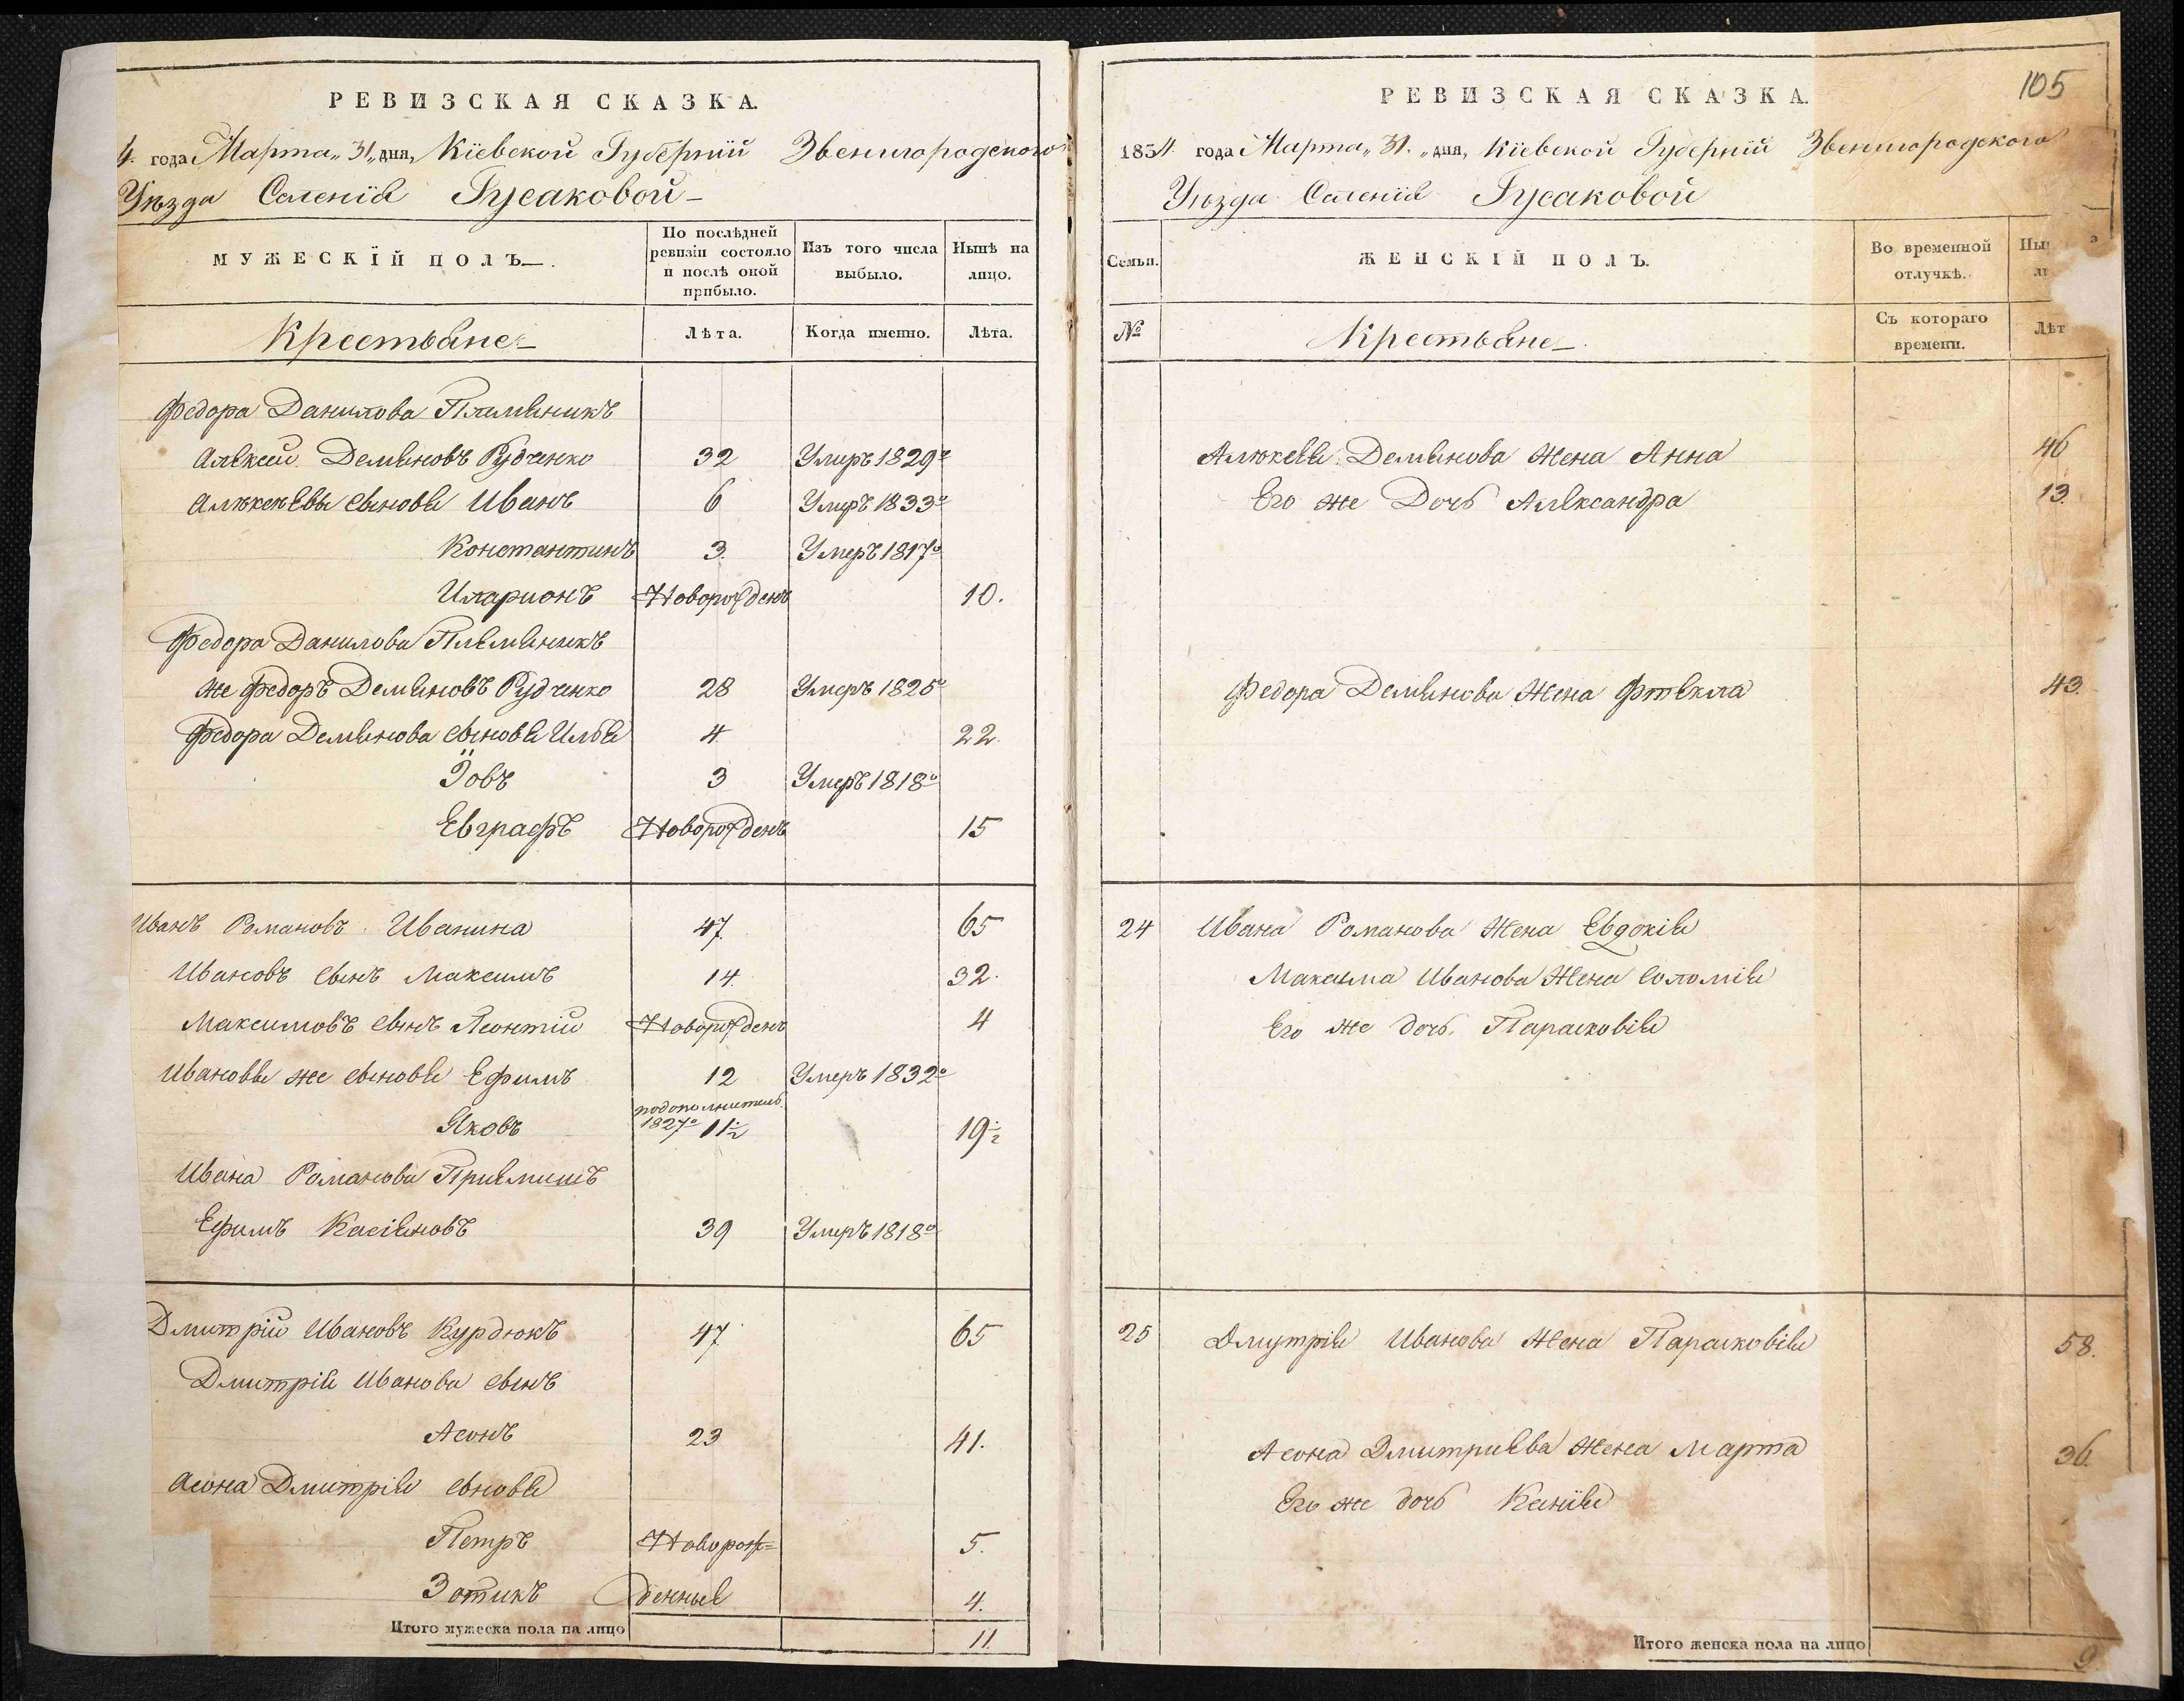 РЕВИЗСКАЯ СКАЗКА.
4. года Марта „31„ дня, Кіевской Губерніи Звенигородского
Уѣзда Селенія Гусаковой
МУЖЕСКІЙ ПОЛЪ.
По послѣдней ревизіи состояло и послѣ оной прибыло.
Изъ того числа выбыло.
Нынѣ на лицо.
Крестьяне
Лѣта.
Когда именно.
Лѣта.
Федора Данилова Племяникъ
Алексей Демяновъ Рудченко 32 Умеръ 1829го
Алексеевы сыновя Иванъ 6 Умеръ 1833го
Константинъ 3. Умеръ 1817го
Иларионъ Новорожденъ 10.
Федора Данилова Племяникъ
же Федоръ Демяновъ Рудченко 28 Умеръ 1825го
Федора Демянова сыновя Илья 4 22.
Іовъ 3 Умеръ 1818го
Евграфъ Новорожденъ 15
Иванъ Романовъ Иванина 47. 65
Ивановъ сынъ Максимъ 14. 32.
Максимовъ сынъ Леонтій Новорожденъ 4
Ивановы же сыновя Ефимъ 12 Умеръ 1832го
Яковъ подополнитель. 1827го 11½ 19½
Ивана Романова Приемышъ
Ефимъ Касіяновъ 39 Умеръ 1818го
Дмитрій Ивановъ Курдюкъ 47. 65
Дмитрія Иванова сынъ
Асонъ 23 41.
Асона Дмитрія сыновя
Петръ Новорож= 5.
Зотикъ денные 4.
Итого мужеска пола на лицо 11.
105
РЕВИЗСКАЯ СКАЗКА.
1834. года Марта „31.„ дня, Кіевской Губерніи Звенигородского
Уѣзда Селенія Гусаковой
Семьи.
ЖЕНСКІЙ ПОЛЪ.
Во временной отлучкѣ.
№
Крестьяне
Съ котораго времени.
Лѣт
Алюксея Демянова жена Анна 46
Его же Дочь Александра 13.
Федора Демянова жена Фтекла 43.
24 Ивана Романова жена Евдокія
Максима Иванова жена Соломія
Его же дочь Парасковія
25 Дмутрія Иванова жена Парасковія 58.
Асона Дмитриева жена Марта 36.
Его же дочь Ксенія
Итого женска пола на лицо 9.